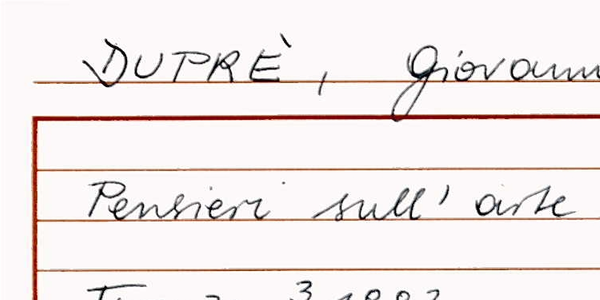 DUPRÈ, Giovanni
Pensieri sull' arte